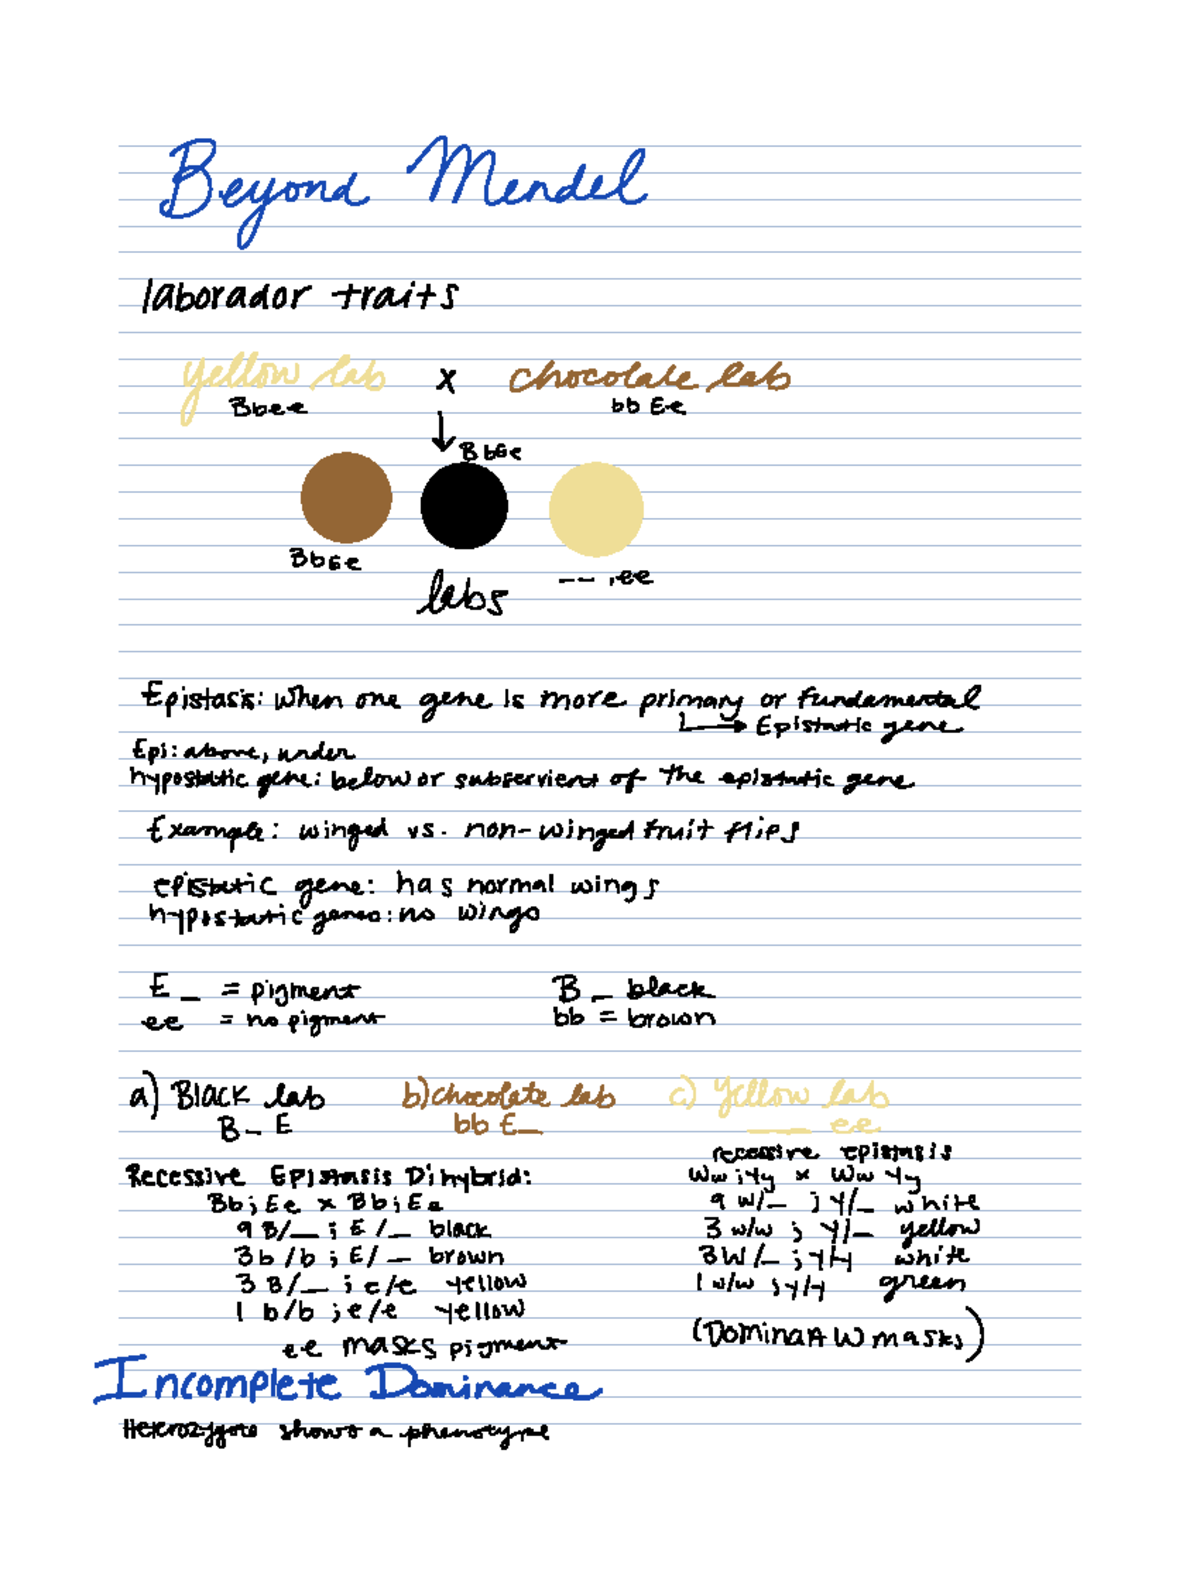 Beyond Mendel
laborador traits
yellow lab x chocolate lab
Bbee bb Ee
BbEe
BbEe
-- , ee
labs
Epistasis: when one gene is more primary or fundamental
Epistatic gene
Epi: above, under
hypostatic gene: below or subservient of the epistatic gene
Example: winged vs. non-winged fruit flies
epistatic gene: has normal wings
hypostatic genes: no wings
E _ = pigment B _ black
ee = no pigment bb = brown
a) Black lab b) chocolate lab c) yellow lab
B _ E bb E _ __ ee
Recessive Epistasis Dihybrid:
Bb; Ee x Bb; Ee
9 B/_ ; E/_ black
3 b/b ; E/_ brown
3 B/_ ; e/e yellow
1 b/b ; e/e yellow
ee masks pigment
recessive epistasis
Ww ; Yy x Ww Yy
9 W/_ ; Y/_ white
3 w/w ; Y/_ yellow
3 W/_ ; y/y white
1 w/w ; y/y green
(Dominant W masks)
Incomplete Dominance
Heterozygote shows a phenotype